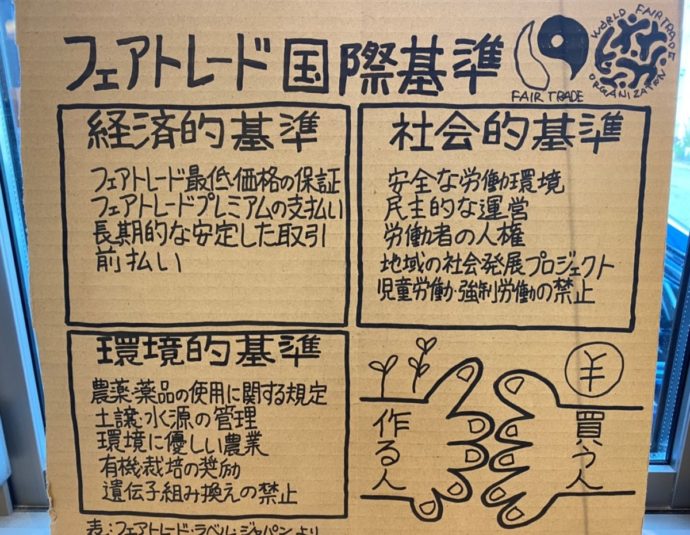 フェアトレード国際基準
FAIR TRADE
WORLD FAIRTRADE ORGANIZATION
経済的基準
フェアトレード最低価格の保証
フェアトレードプレミアムの支払い
長期的な安定した取引
前払い
社会的基準
安全な労働環境
民主的な運営
労働者の人権
地域の社会発展プロジェクト
児童労働・強制労働の禁止
環境的基準
農薬・薬品の使用に関する規定
土譲・水源の管理
環境に優しい農業
有機栽培の奨励
遺伝子組み換えの禁止
作る人
¥
買う人
表:フェアトレード・ラベル・ジャパンより